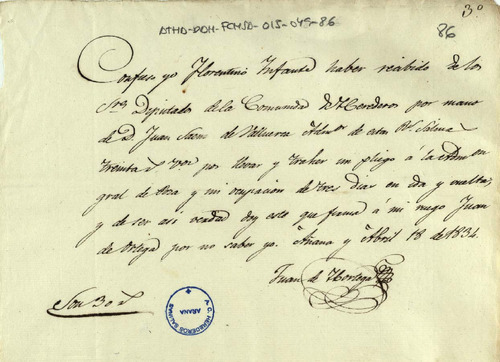 3º
ATHA-DAH-FCMSA-015-049-86
86
Confieso yo Florentino Infante haber recibido de los
Sres Diputados de la Comunidad de Herederos por mano
de D. Juan Saenz de Admor de estas Rs Salinas
treinta rs vn por llevar y traher un pliego á la Admon
gral de Poza y mi ocupacion de tres dias en ida y vuelta;
y de ser asi verdad doy este que firma á mi ruego Juan
de Ortega por no saber yo. Añana y Abril 18 de 1834.
Juan de Hortega
Son 30 rs
A.C. HEREDEROS SALINAS
AÑANA